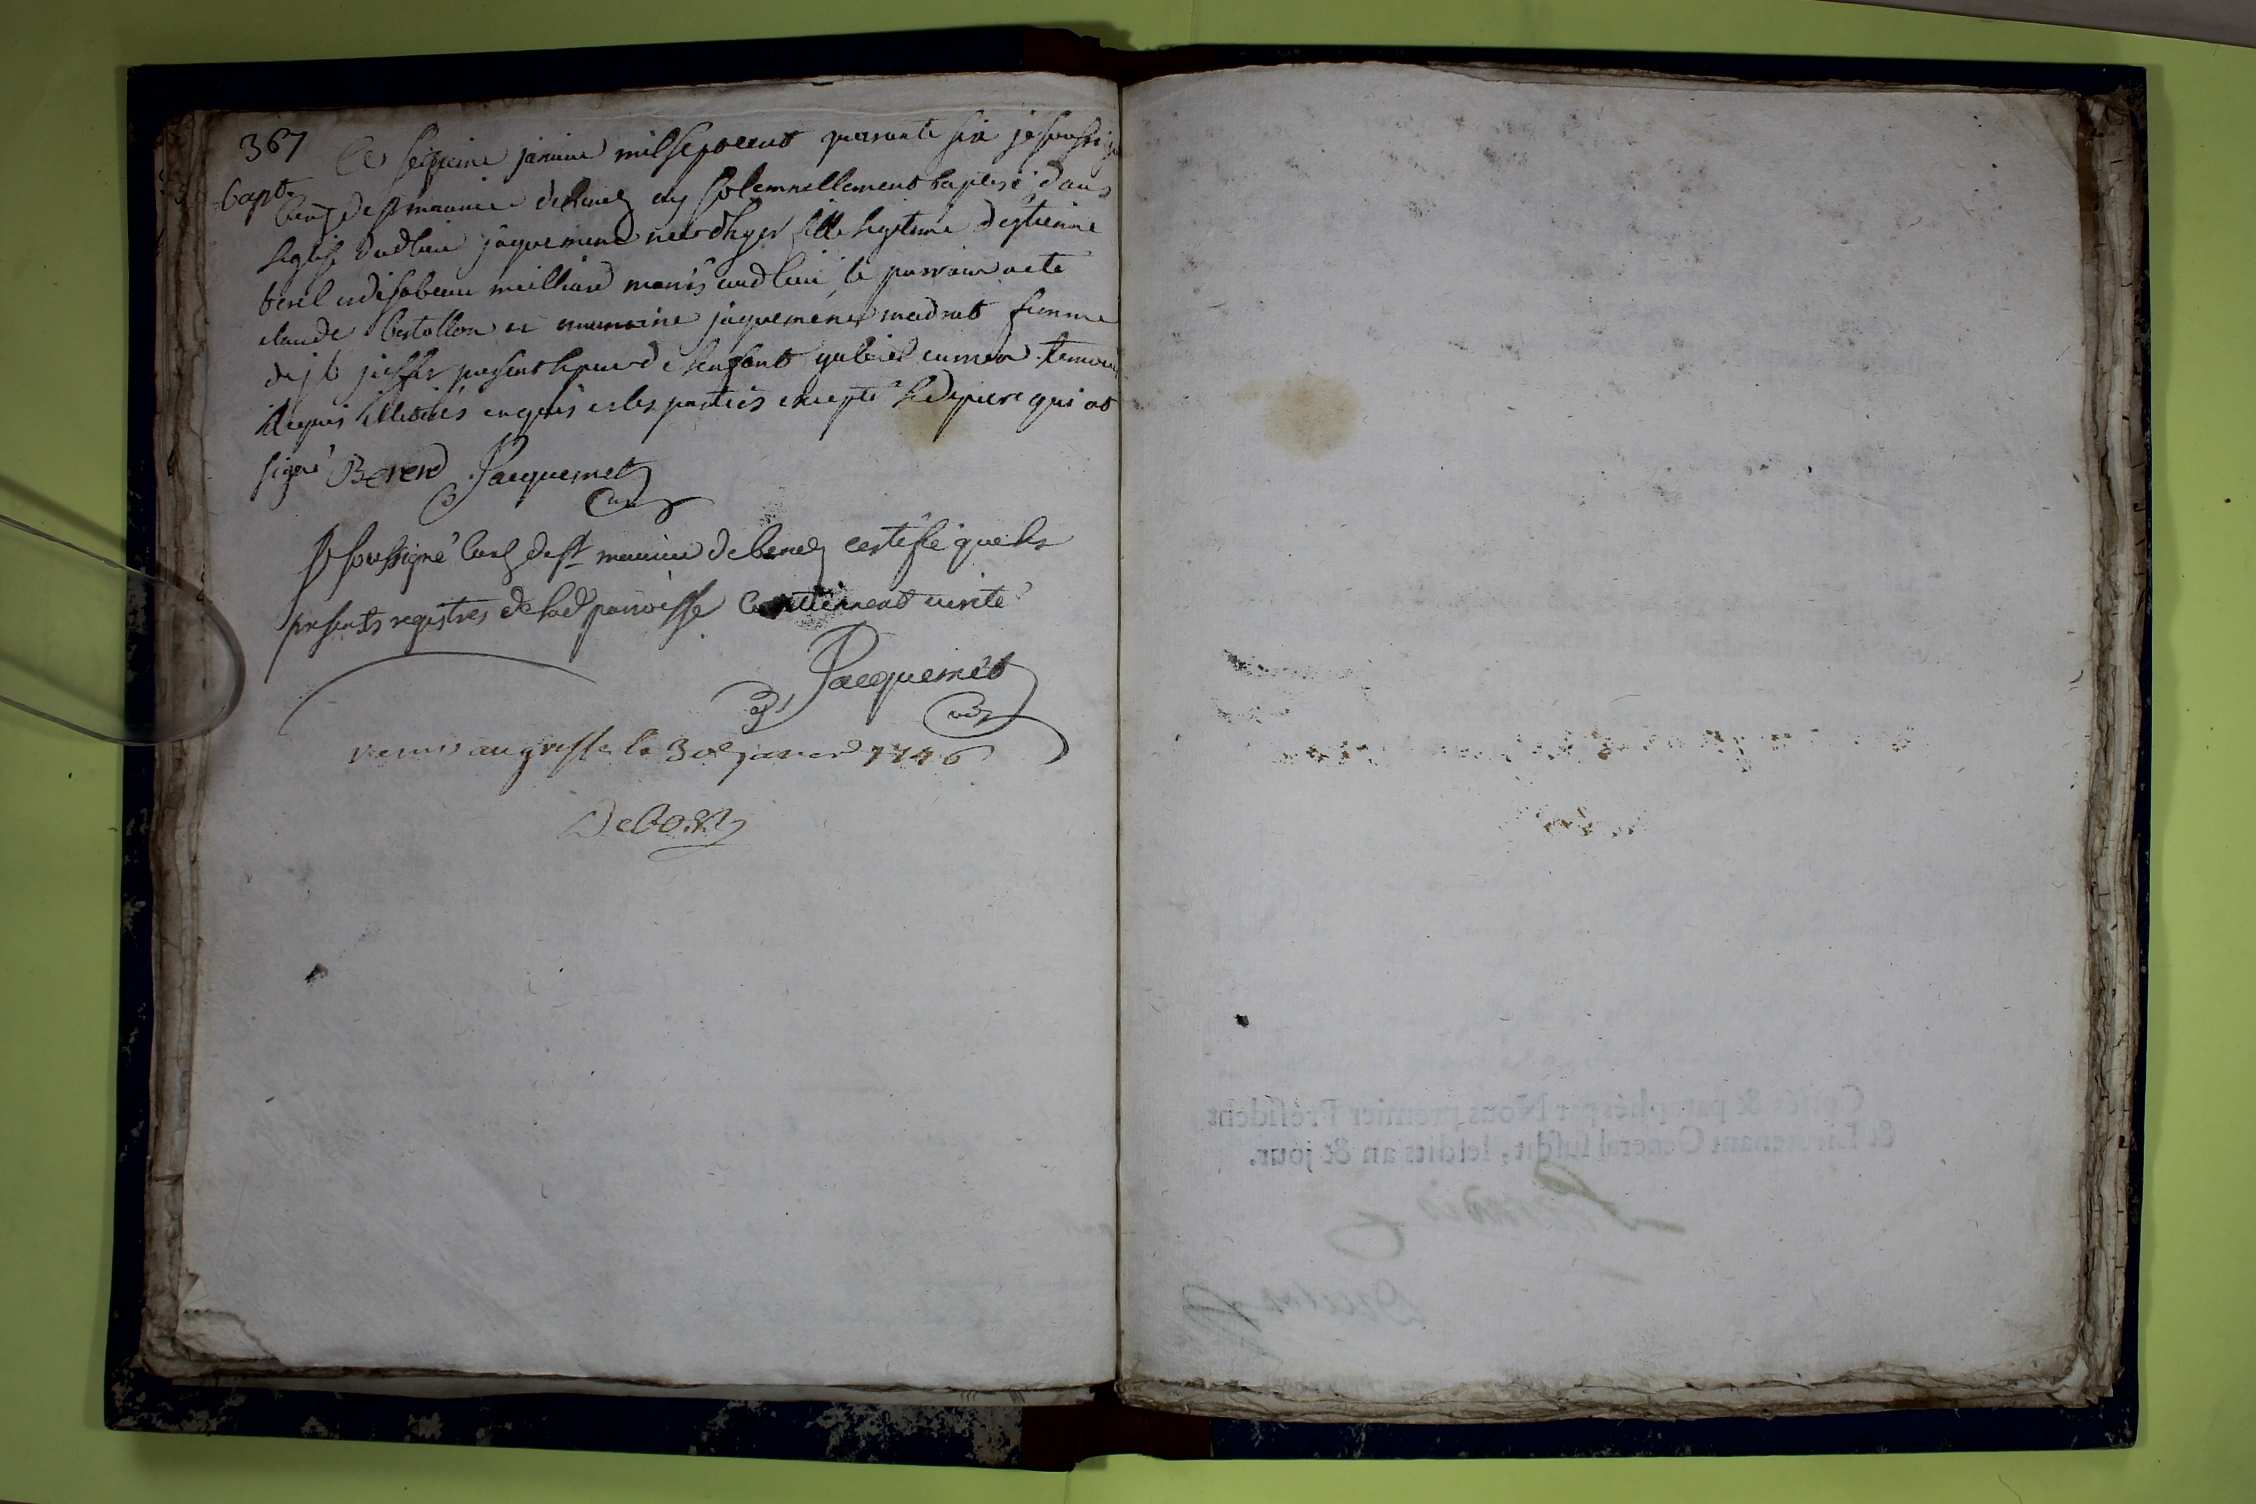 367
bapt
Ce seizieme janvier mil sept cent quarante six je soussigné
Curé de st maurice de benet ay solemnellement baptisé dans
l'eglise dud lieu jaquemene née d'hyer fille legitime d'estienne
berel et d'isabeau meilhard mariés aud lieu le parrain a eté
claude bertollon et marraine jaquemene madinot femme
de jb present le pere de l'enfant gabriel temoin
illiterés enquis et les parties excepté led pere qui at
signé Berend Jacquemet
curé
Je soussigné Curé de st maurice de benet certifie que les
presents registres de lad parroisse Contiennent verité
Jacquemet
curé
remis au greffe le 30e janvier 1746
Cottés & paraphés par Nous premier Président
& Lieutenant General susdit, lesdits an & jour.